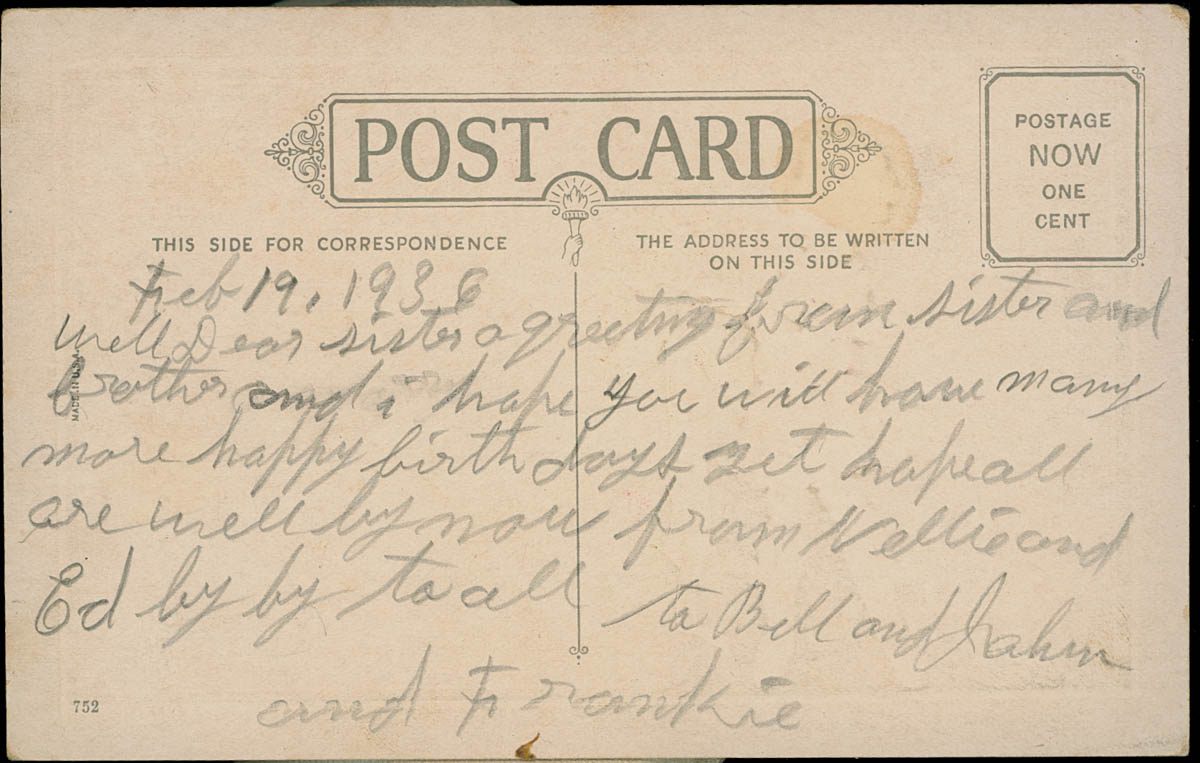 POST CARD
POSTAGE
NOW
ONE
CENT
THIS SIDE FOR CORRESPONDENCE
THE ADDRESS TO BE WRITTEN
ON THIS SIDE
Feb 19, 1936
Well Dear sister a greeting from sister and
brother and i hope you will have many
more happy birth days yet hope all
are well by now from Nellie and
Ed by by to all
to Bell and John
and Frankie
MADE IN U.S.A.
752